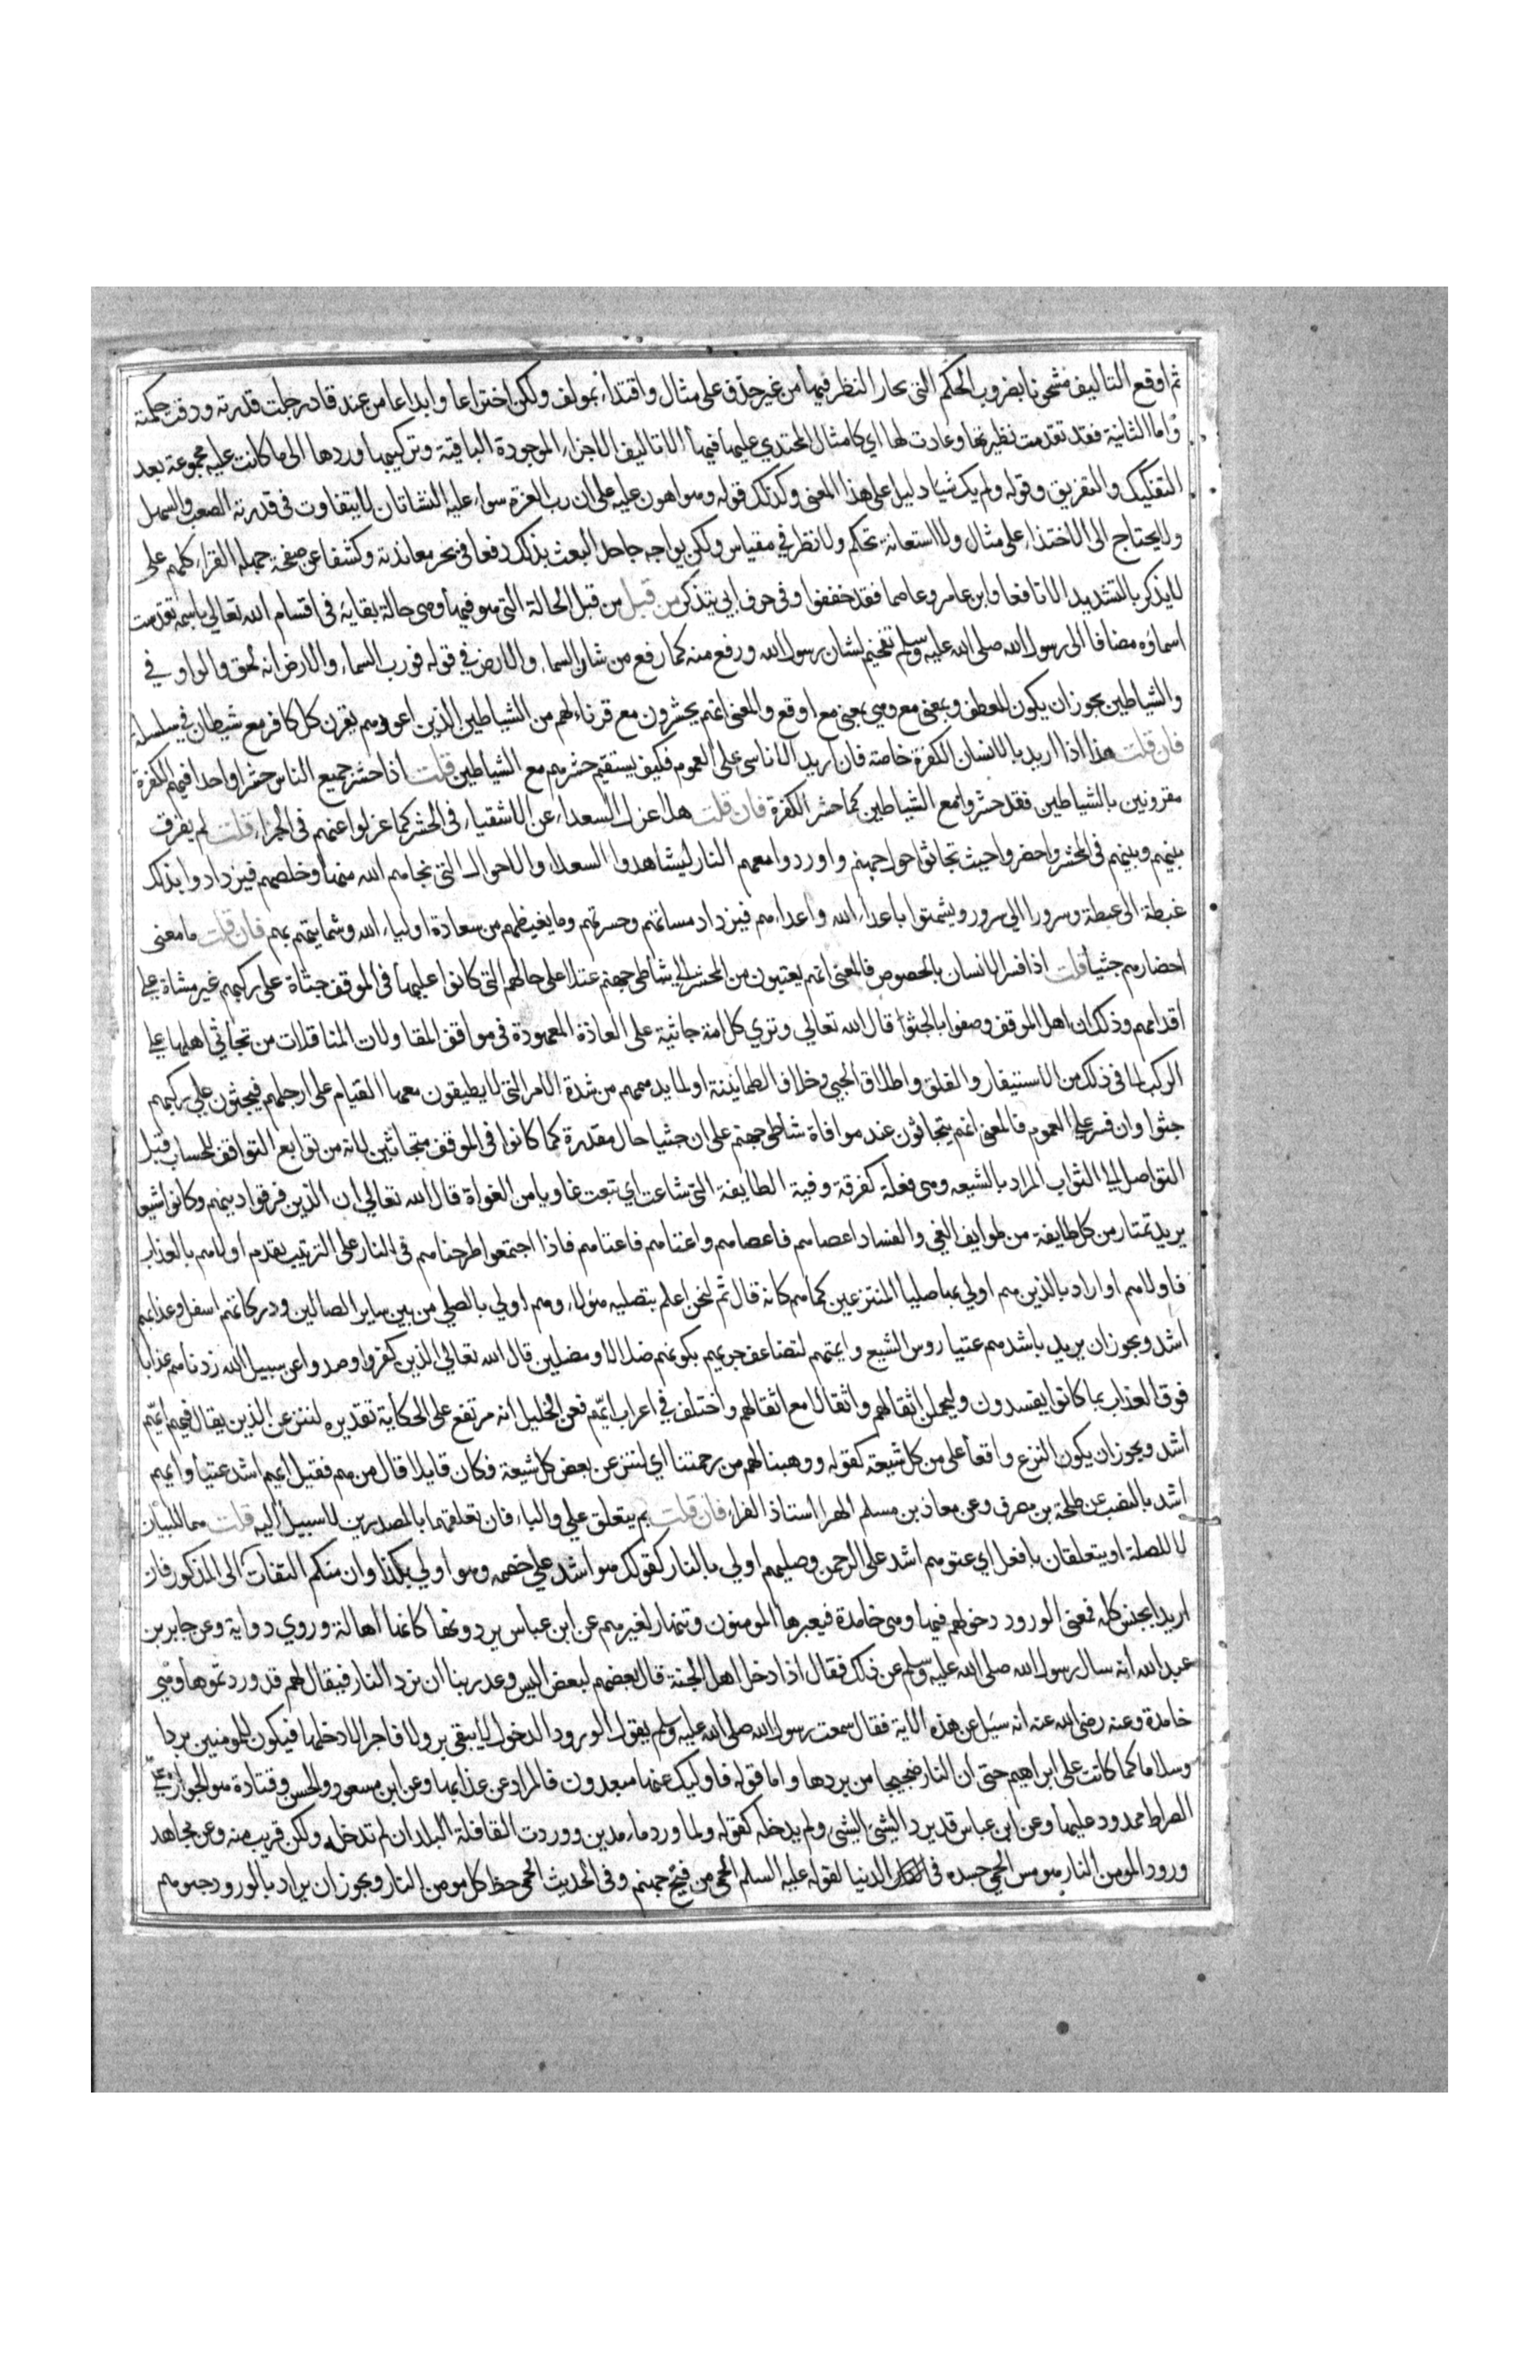 ثم اوقع التاليف مشحونا بضروب الحكم التى يحار النظر فيها من غير حذو على مثال واقتداء بمولف ولكن اختراعا وابداعا من عند قادر جلت قدرته ودقت حكمته
واما الثانية فقد تقدمت نظيرتها وعادت لها اي كامثال المحتدي عليها فيها الا تاليف الاجزاء الموجودة الباقية وتركيبها وردها الى ما كانت عليه مجموعة بعد
التفكيك والتفريق وقوله ولم يك شيا دليل على هذا المعنى وكذلك قوله وهو اهون عليه على ان رب العزة سواء عليه النشاتان لا يتفاوت فى قدرته الصعب والسهل
ولا يحتاج الى الاحتذاء على مثال ولا استعانة بحكم ولا نظر في مقياس ولكن يواجه جاحد البعث بذلك دفعا فى بحر معاندته وكشفا عن صفحة جهله القراء كلهم على
لا يذكر بالتشديد الا نافعا وابن عامر وعاصما فقد خففوا وفى حرف ابي يتذكر من قبل من قبل الحالة التى هو فيها وهى حالة بقايه فى اقسام الله تعالى باسمه تقدست
اسماوه مضافا الى رسول الله صلى الله عليه وسلم تفخيم لشان رسول الله ورفع منه كما رفع من شان السماء والارض في قوله فورب السماء والارض انه لحق والواو في
والشياطين يجوز ان يكون للعطف وبمعنى مع وهي بمعنى مع اوقع والمعنى انهم يحشرون مع قرناءلهم من الشياطين الذين اغووهم يقرن كل كافر مع شيطان في سلسلة
فان قلت هذا اذا اريد بالانسان الكفرة خاصة فان اريد الاناسى على العموم فكيف يستقيم حشرهم مع الشياطين قلت اذا حشر جميع الناس حشرا واحدا فيهم الكفرة
مقرونين بالشياطين فقد حشروا مع الشياطين كما حشر الكفرة فان قلت هلا عزل السعداء عن الاشقياء فى الحشر كما عزلوا عنهم فى الجزاء قلت لم يفرق
بينهم وبينهم فى المحشر واحضروا حيث تجاثوا حول جهنم واوردوا معهم النار ليشاهدوا السعداء الاحوال التى نجاهم الله منها وخلصهم فيزدادوا بذلك
غبطة الى غبطة وسرورا الى سرور ويشمتوا باعداء الله واعداءهم فيزداد مساتهم وحسرتهم وما يغيظهم من سعادة اولياء الله وشماتتهم بهم فان قلت ما معنى
احضارهم جثيا قلت اذا فسر الانسان بالخصوص فالمعنى انهم يعتبون من المحشر الى شاطى جهنم عتلا على حالهم التى كانوا عليها فى الموقف جثاة على ركبهم غير مشاة على
اقدامهم وذلك ان اهل الموقف وصفوا بالجثو قال الله تعالي وترى كل امة جاثية على العادة المعهودة فى مواقف المقاولات المناقلات من تجاثى اهلها على
الركب لما فى ذلك من الاستيفاز والقلق واطلاق الحبى وخلاف الطمانينة او لما يدهمهم من شدة الامر التى لا يطيقون معها القيام على ارجلهم فيجثون على ركبهم
جثوا وان فسر على العموم فالمعنى انهم يتجاثون عند موافاة شاطى جهنم على ان جثيا حال مقدرة كما كانوا فى الموقف متجاثين لانه من توابع التواقف للحساب قبل
التواصل الى الثواب المراد بالشيعه وهى فعلة كفرقة وفية الطايفة التى شاعت اي تبعت غاويا من الغواة قال الله تعالي ان الذين فرقوا دينهم وكانوا شيعا
يريد تمتار من كل طايفة من طوايف الغي والفساد اعصاهم فاعصاهم واعتاهم فاعتاهم فاذا اجتمعوا طرحناهم فى النار على الترتيب يقدم اولاهم بالعذاب
فاولاهم او اراد بالذين هم اولى بها صليا المنتزعين كماهم كانه قال ثم لنحن اعلم بتصليه هولاء وهم اولي بالصلي من بين ساير الصالين ودركاتهم اسفل وعذابهم
اشد ويجوز ان يريد باشدهم عتيا روس الشيع وايمتهم لتضاعف جرمهم بكونهم ضلالا ومضلين قال الله تعالي الذين كفروا وصدوا عن سبيل الله زدناهم عذابا
فوق العذاب بما كانوا يفسدون وليحملن اثقالهم واثقالا مع اثقالهم واختلف في اعراب ايهم فعن الخليل انه مرتفع على الحكاية تقديره لننزعن الذين يقال فيهم ايهم
اشد ويجوز ان يكون النزع واقعا على من كل شيعة كقوله ووهبنا لهم من رحمتنا اي لننزعن بعض كل شيعة فكان قايلا قال من هم فقيل ايهم اشد عتيا وايهم
اشد بالنصب عن طلحة بن مصرف وعن معاذ بن مسلم الهرا استاذ الفراء فان قلت بم يتعلق على والباء فان تعلقهما بالمصدرين لا سبيل اليه قلت هما للبيان
لا للصلة او يتعلقان بافعل اي عتوهم اشد على الرحمن وصليهم اولي بالنار كقولك هو اشد على خصمه وهو اولي بكذا وان منكم التفات الى المذكور فان
اريد الجنس كله فمعنى الورود دخولهم فيها وهى خامدة فيعبرها المومنون وتنهار لغيرهم عن ابن عباس يردونها كانها اهالة وروي دواية وعن جابر بن
عبد الله انه سال رسول الله صلى الله عليه وسلم عن ذلك فقال اذا دخل اهل الجنة قال بعضهم لبعض اليس وعد ربنا ان نرد النار فيقال لهم قد وردتموها وهي
خامدة وعنه رضى الله عنه انه سيل عن هذه الاية فقال سمعت رسول الله صلى الله عليه وسلم يقول الورود الدخول لا يبقى بر ولا فاجر الا دخلها فيكون للمومنين بردا
وسلاما كما كانت على ابراهيم حتى ان للنار ضجيجا من بردها واما قوله فاوليك عنها مبعدون فالمراد عن عذابها وعن ابن مسعود والحسن وقتادة هو الجواز على
الصراط ممدود عليها وعن ابن عباس قد يرد الشيئ الشيئ ولم يدخله كقوله ولما ورد ماء مدين ووردت القافلة البلد ان لم تدخله ولكن قريب منه وعن مجاهد
ورود المومن النار هو مس الحمى جسده فى الدنيا لقوله عليه السلم الحمى من فيح جهنم وفى الحديث الحمى حظ كل مومن من النار ويجوز ان يراد بالورود جثوهم